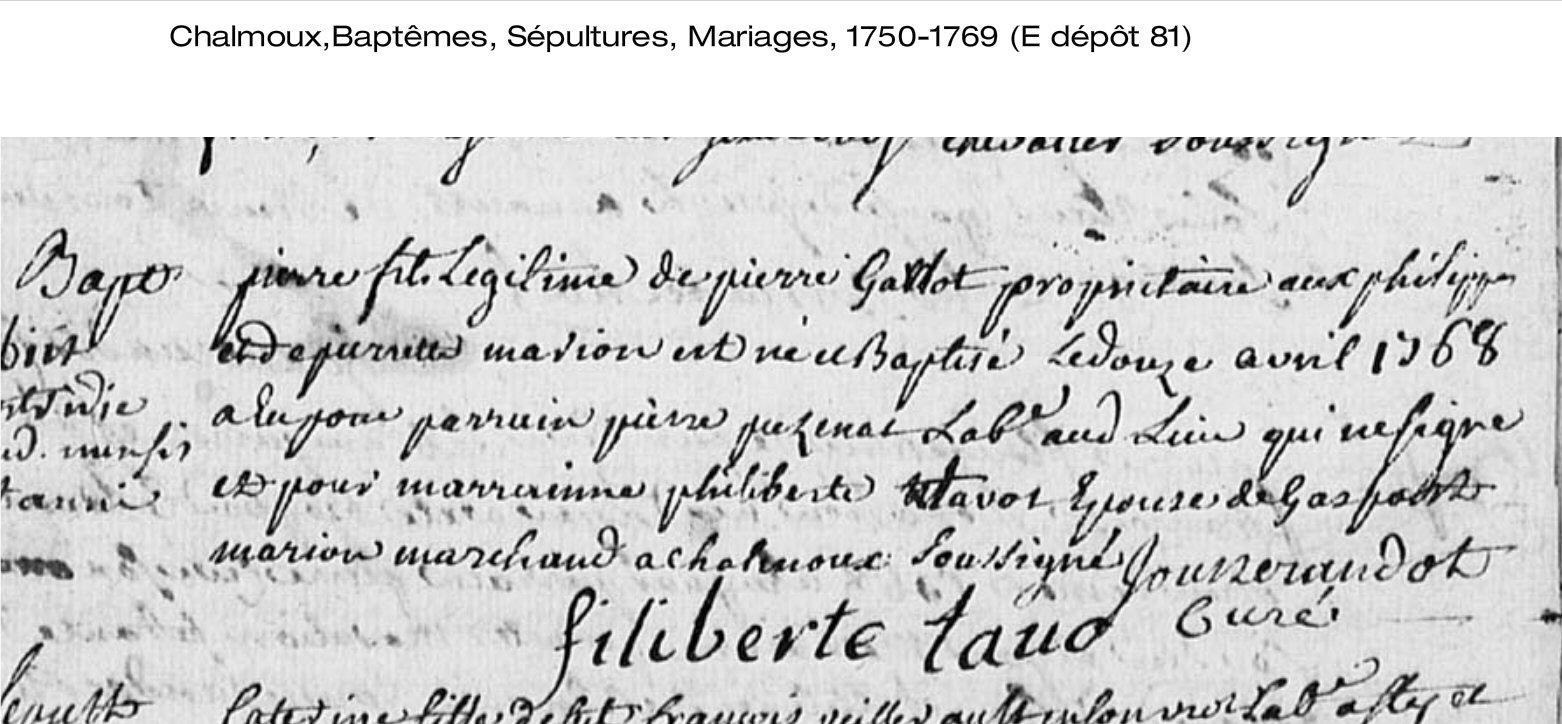 Chalmoux,Baptêmes, Sépultures, Mariages, 1750-1769 (E dépôt 81)
chevalier soussigné
Bapt pierre fils Legitime de pierre Gallot proprietaire aux philippes
et de pierrette marion est né et Baptisé Le douze avril 1768
a Eu pour parrain pierre puzenat Labr aud Lieu qui ne signe
et pour marrainne philiberte tavot Epouse de Gaspard
marion marchand a chalmoux soussigné Jounerandot
filiberte tauo Curé
Caterine fille de